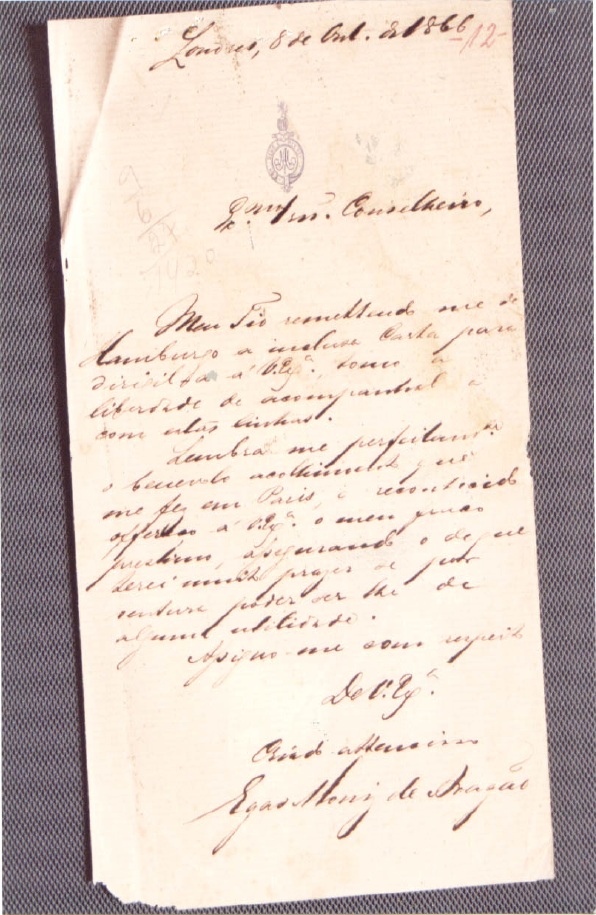 Londres, 8 de Out. de 1866
-12-
Exmo Snr. Conselheiro,
9
6/
27
Meu Tio remettendo me de
Hamburgo a inclusa Carta para
dirigil-a a V. Exª., tomo a
liberdade de acompanhal a
com estas linhas.
Lembra me perfeitamte
o benevolo acolhimento que
me fez em Paris, e reconhecido
offereço a V. Exª. o meu pouco
prestimo, assegurando o de que
terei muito prazer se por
ventura poder ser lhe de
alguma utilidade.
Assigno-me com respeito
De V. Exª.
Criado attencioso
Egas Moniz de Aragão